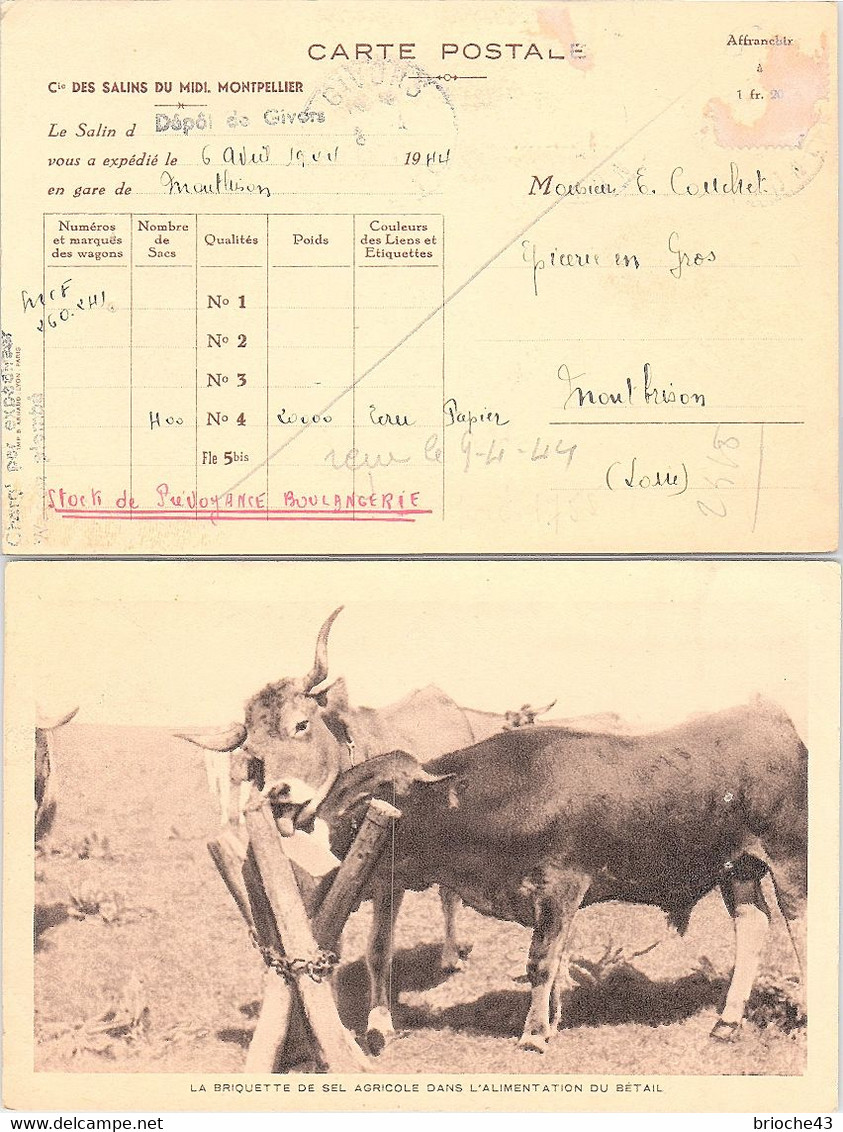 CARTE POSTALE
Affranchir
à
1 fr. 20
Cie DES SALINS DU MIDI. MONTPELLIER
GIVORS
Le Salin d Dépôt de Givors
vous a expédié le 6 Avril 1944 1944
en gare de Montbrison
Monsieur E. Couchet
Epicerie en Gros
Montbrison
(Loire)
Numéros et marqués des wagons
Nombre de Sacs
Qualités
Poids
Couleurs des Liens et Etiquettes
SNCF
260.241
No 1
No 2
No 3
400 No 4 20000 Ecru Papier
Fle 5bis
reçu le 9-4-44
Stock de PRÉVOYANCE BOULANGERIE
Chargt par expéditeur
Wagon plombé
LA BRIQUETTE DE SEL AGRICOLE DANS L'ALIMENTATION DU BÉTAIL
brioche43